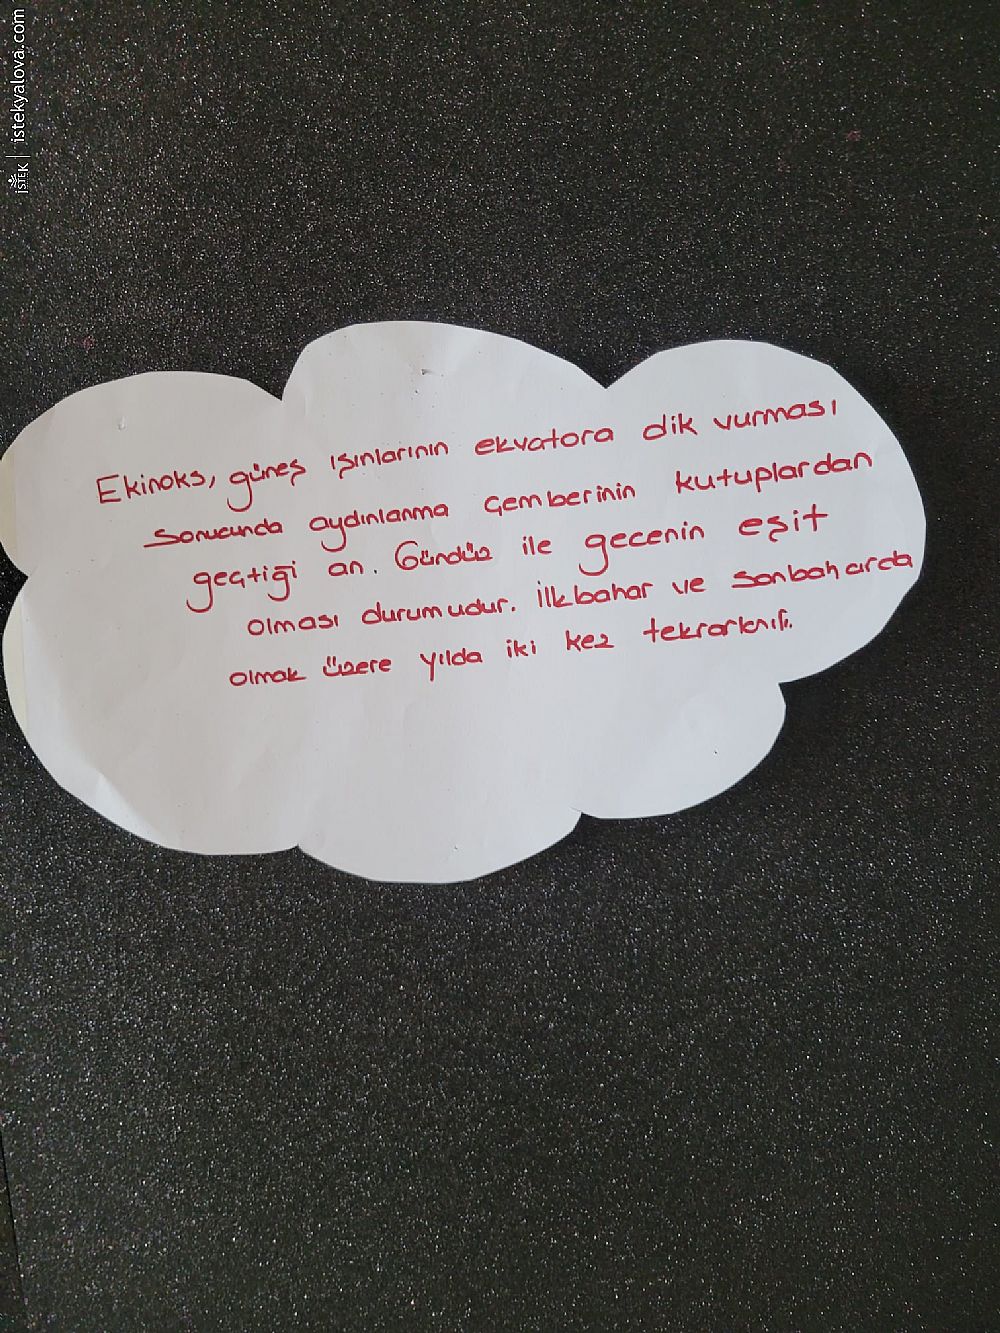 İSTEK | istekyalova.com
Ekinoks, güneş ışınlarının ekvatora dik vurması
sonucunda aydınlanma çemberinin kutuplardan
geçtiği an. Gündüz ile gecenin eşit
olması durumudur. İlkbahar ve sonbaharda
olmak üzere yılda iki kez tekrarlanır.